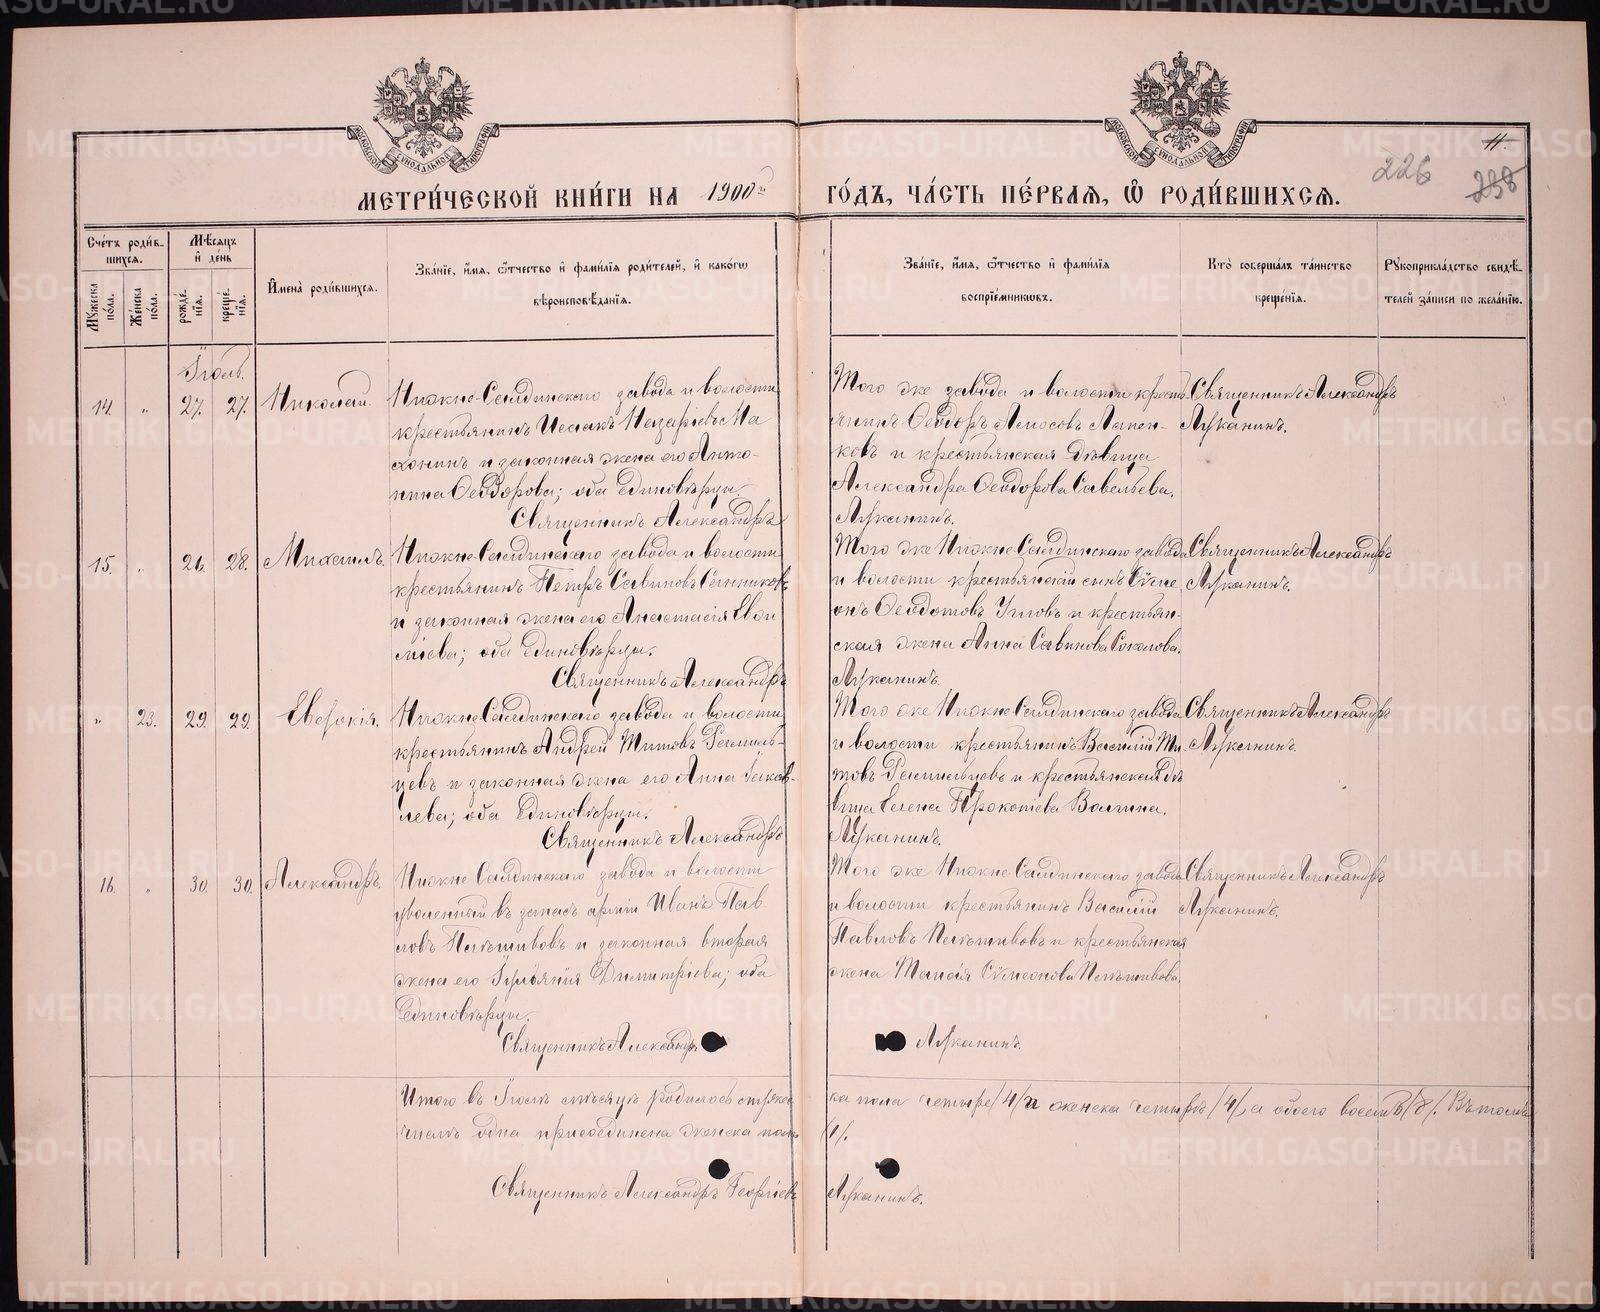 МЕТРИ́ЧЕСКОЙ КНИ́ГИ НА 1900й ГО́ДЪ, ЧА́СТЬ ПЕ́РВАЯ, Ѿ РОДИ́ВШИХСЯ.
11.
226
238
Сче́тъ роди́в-
шихся.
Му́жеска
по́ла.
Же́нска
по́ла.
Мѣ́сяцъ
и҆ де́нь
рожде́-
нїя.
креще́-
нїя.
И҆мена̀ роди́вшихся.
Зва́нїе, и҆́мя, ѻ҆́тчество и҆ фами́лїя роди́телей, и҆ како́гѡ
вѣроисповѣ́данїя.
Зва́нїе, и҆́мя, ѻ҆́тчество и҆ фами́лїя
воспрїе́мникѡвъ.
Кто̀ соверша́лъ та́инство
креще́нїя.
Рꙋкоприкла́дство свидѣ́-
телей за́писи по жела́нїю.
Іюль.
14. „ 27. 27. Николай.
Нижне-Салдинскаго завода и волости
крестьянинъ Исаакъ Назаріевъ Ма
хонинъ и законная жена его Анто-
нина Ѳеодорова; оба Единовѣрцы.
Священникъ Александръ
Того же завода и волости крестья-
янинъ Ѳеодоръ
ковъ и крестьянская дѣвица
Александра Ѳеодорова Савельева.
Луканинъ.
Священникъ Александръ
Луканинъ.
15. „ 26. 28. Михаилъ.
Нижне-Салдинскаго завода и волости
крестьянинъ Петръ Савиновъ
и законная жена его Анастасія
оба Единовѣрцы.
Священникъ Александръ
Того же Нижне-Салдинскаго завода
и волости крестьянскій сынъ Сѵме
онъ Ѳеодотовъ и крестьян-
ская жена Анна Савинова Соколова.
Луканинъ.
Священникъ Александръ
Луканинъ.
„ 23. 29. 29. Евдокія.
Нижне-Салдинскаго завода и волости
крестьянинъ Андрей Титовъ
цевъ и законная жена его Анна Іаков-
лева; оба Единовѣрцы.
Священникъ Александръ
Того же Нижне-Салдинскаго завода
и волости крестьянинъ Василій Ти-
товъ и крестьянская дѣ
вица Елена Прокопіева Волгина.
Луканинъ.
Священникъ Александръ
Луканинъ.
16. „ 30. 30. Александръ.
Нижне-Салдинскаго завода и волости
уволенный въ запасъ арміи Иванъ Пав-
ловъ и законная вторая
жена его Іуліанія Димитріева; оба
Единовѣрцы.
Священникъ Александръ
Того же Нижне-Салдинскаго завода
и волости крестьянинъ Василій
Павловъ и крестьянская
жена Сѵмеонова
Луканинъ.
Священникъ Александръ
Луканинъ.
Итого въ Іюлѣ мѣсяцѣ родилось мужес
ка пола четыре /4/ и женска четыре /4/, а обоего восемь /8/. Въ томъ
числѣ одна присоединена женска пола
/1/.
Священникъ Александръ Георгіевъ
Луканинъ.
METRIKI.GASO-URAL.RU